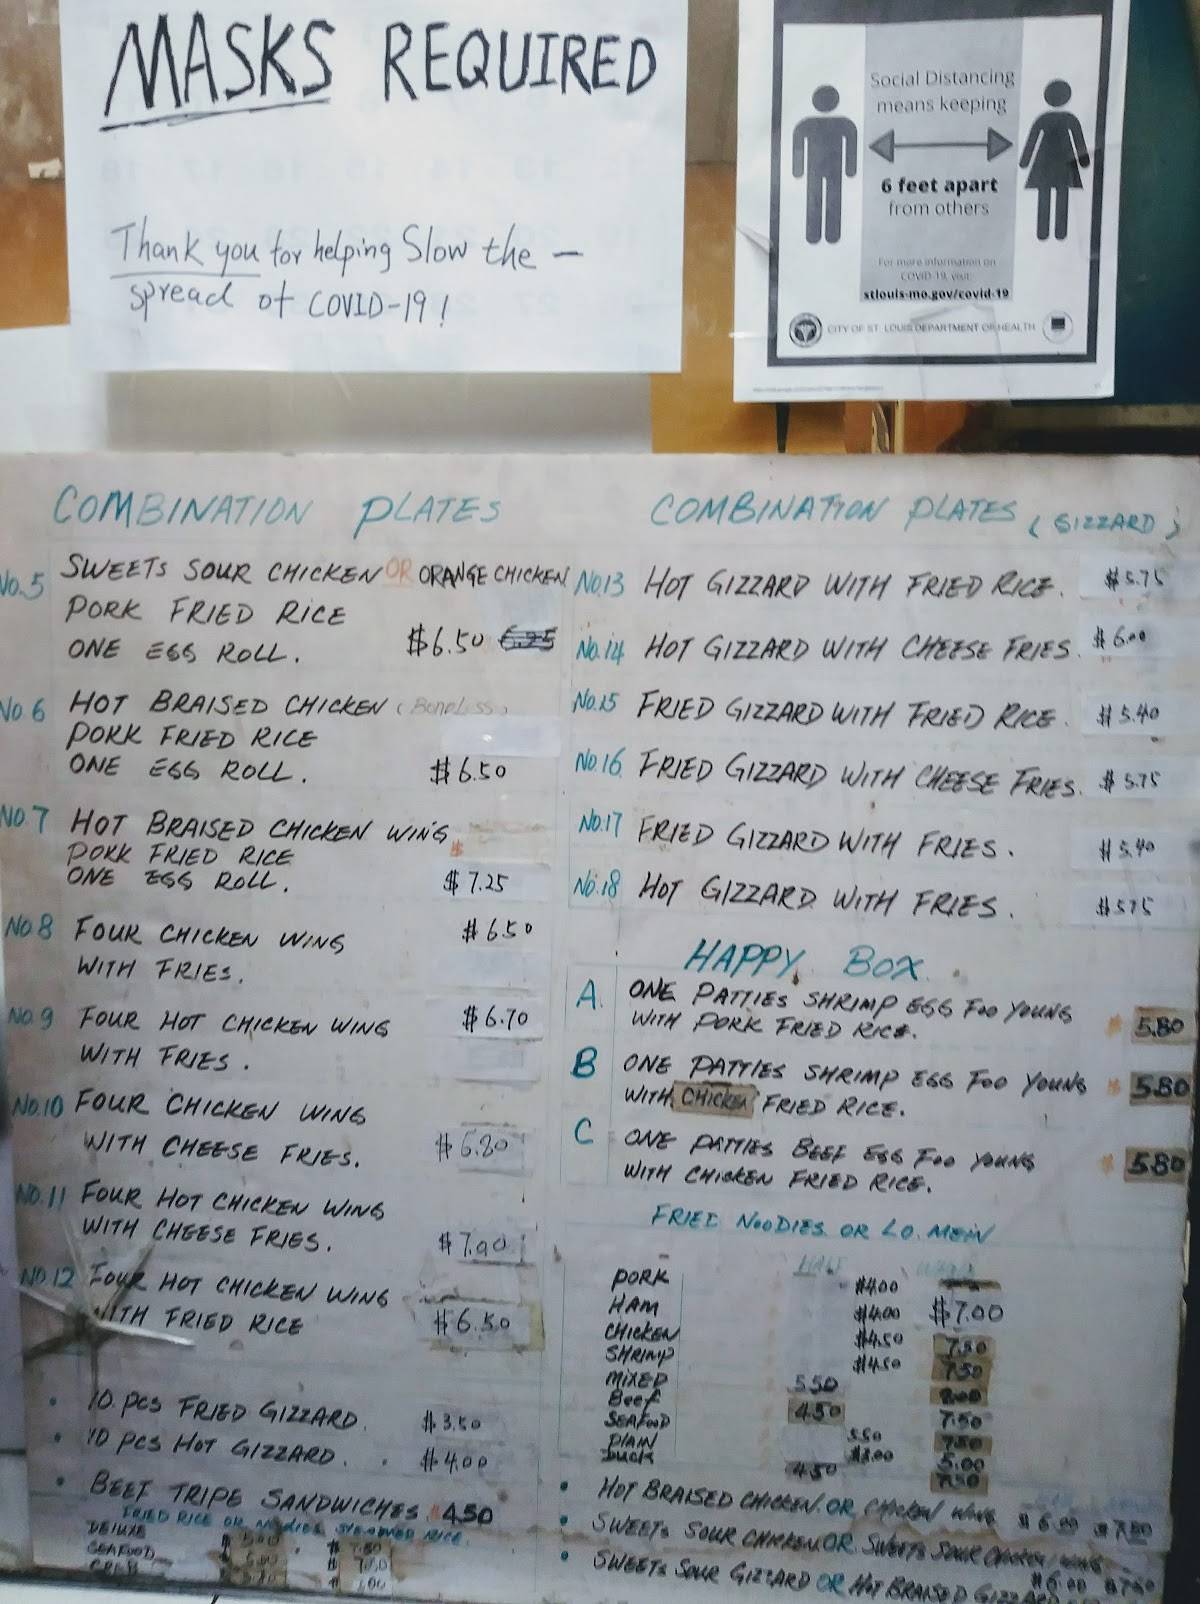 MASKS REQUIRED
Thank you for helping Slow the –
spread of COVID-19!
Social Distancing
means keeping
6 feet apart
from others
For more information on
COVID-19, visit:
stlouis-mo.gov/covid-19
CITY OF ST. LOUIS DEPARTMENT OF HEALTH
COMBINATION PLATES
No.5 SWEETS SOUR CHICKEN OR ORANGE CHICKEN
PORK FRIED RICE
ONE EGG ROLL. $6.50 6.25
No 6 HOT BRAISED CHICKEN (Boneless)
PORK FRIED RICE
ONE EGG ROLL. $6.50
No.7 HOT BRAISED CHICKEN WING
PORK FRIED RICE $
ONE EGG ROLL. $7.25
No.8 FOUR CHICKEN WING $6.50
WITH FRIES.
No.9 FOUR HOT CHICKEN WING $6.70
WITH FRIES.
No.10 FOUR CHICKEN WING
WITH CHEESE FRIES. $6.80
No.11 FOUR HOT CHICKEN WING
WITH CHEESE FRIES. $7.00
No.12 FOUR HOT CHICKEN WING
WITH FRIED RICE $6.50
• 10 pcs FRIED GIZZARD. $3.50
• 10 pcs HOT GIZZARD. $4.00
• BEEF TRIPE SANDWICHES $4.50
FRIED RICE OR NOODLES STEAMED RICE
DELUXE
SEAFOOD
COMBINATION PLATES (GIZZARD)
No.13 HOT GIZZARD WITH FRIED RICE. $5.75
No.14 HOT GIZZARD WITH CHEESE FRIES. $6.00
No.15 FRIED GIZZARD WITH FRIED RICE. $5.40
No.16 FRIED GIZZARD WITH CHEESE FRIES. $5.75
No.17 FRIED GIZZARD WITH FRIES. $5.40
No.18 HOT GIZZARD WITH FRIES. $5.75
HAPPY BOX
A. ONE PATTIES SHRIMP EGG FOO YOUNG
WITH PORK FRIED RICE. $5.80
B ONE PATTIES SHRIMP EGG FOO YOUNG
WITH CHICKEN FRIED RICE. $5.80
C ONE PATTIES BEEF EGG FOO YOUNG
WITH CHICKEN FRIED RICE. $5.80
FRIED NOODLES OR LO. MEIN
HALF
PORK $4.00
HAM $4.00 $7.00
CHICKEN $4.50 7.50
SHRIMP $4.50 7.50
MIXED 5.50 8.00
Beef 4.50 7.50
SEAFOOD 5.50 7.50
PLAIN $3.00 5.00
DUCK 4.50 7.50
• HOT BRAISED CHICKEN OR CHICKEN WING $6.00 $7.50
• SWEETS SOUR CHICKEN OR SWEETS SOUR CHICKEN WING
$6.00
• SWEETS SOUR GIZZARD OR HOT BRAISED GIZZARD